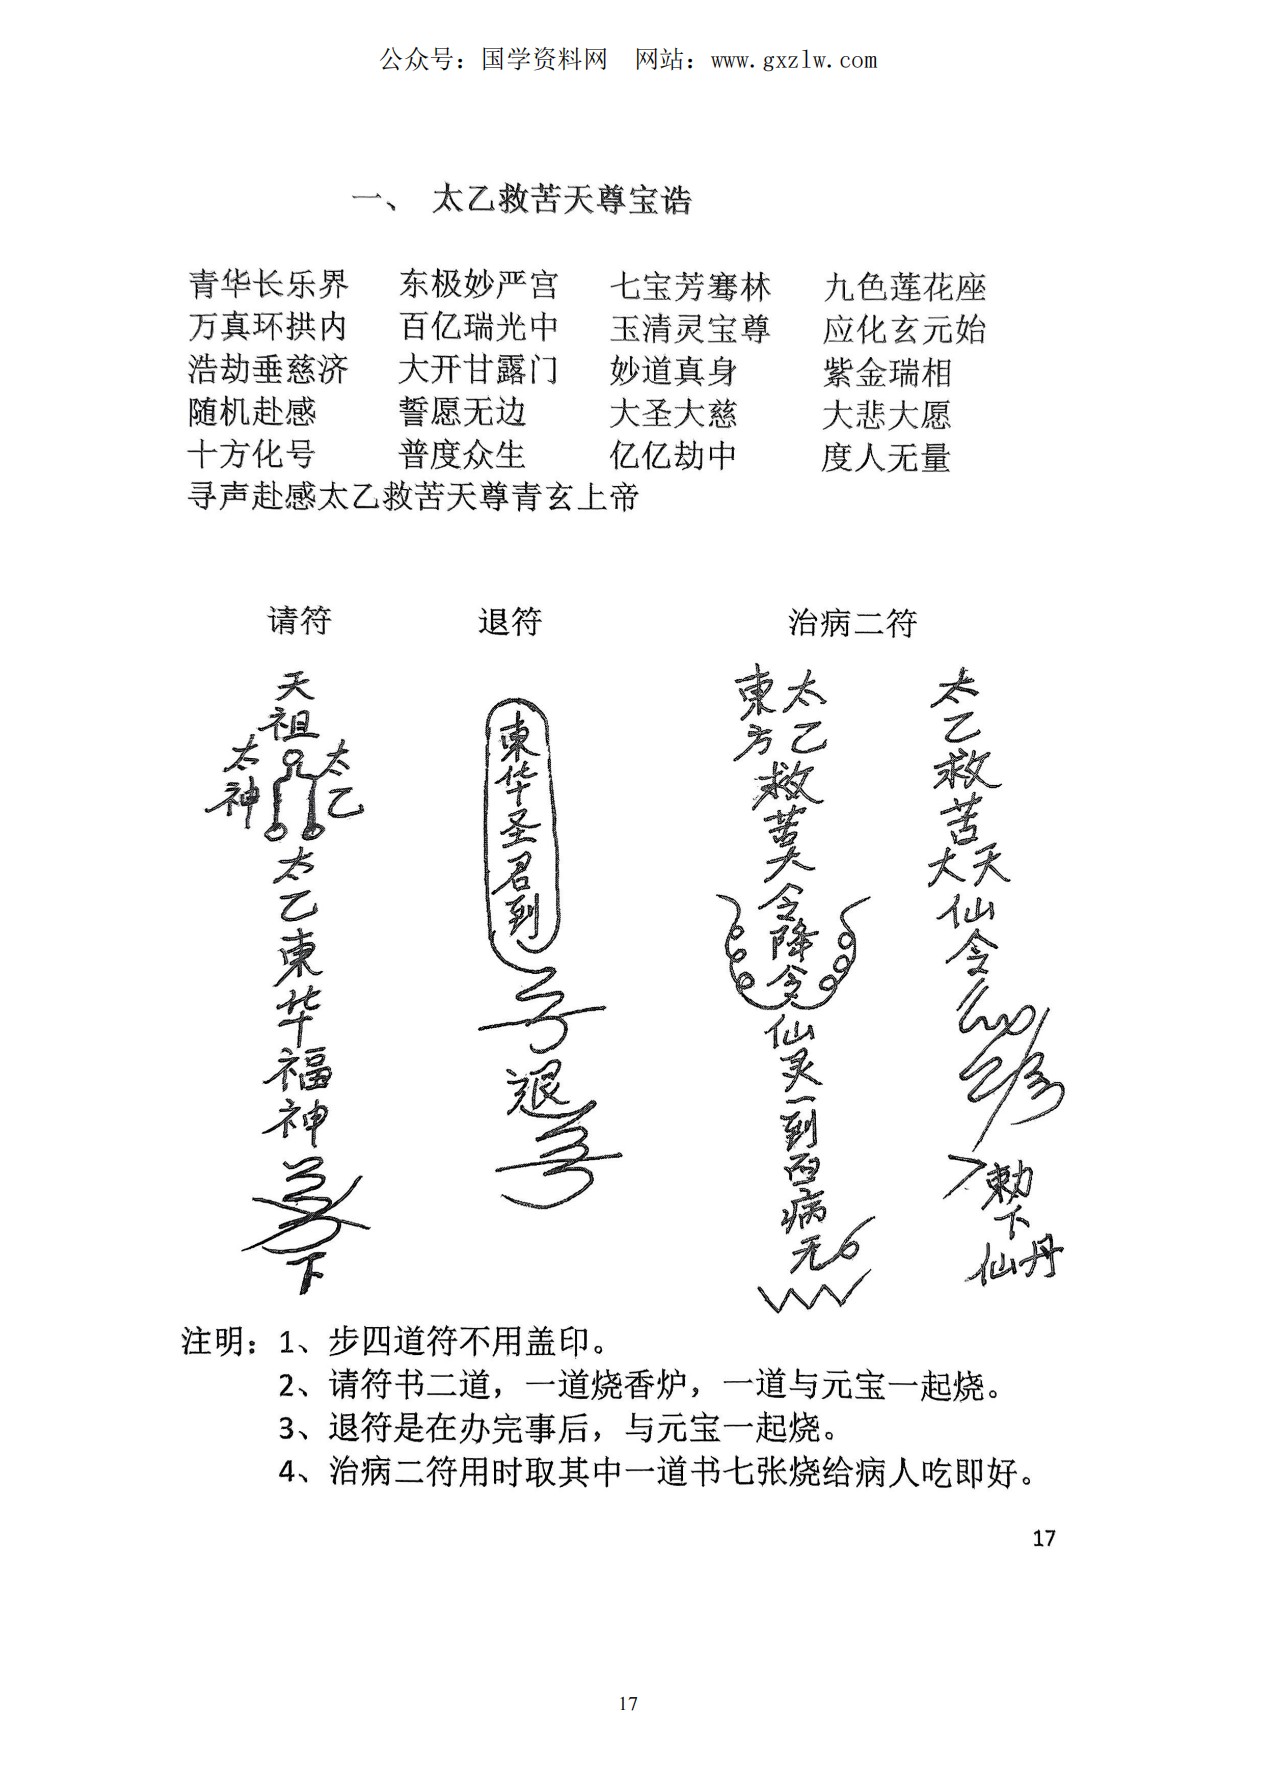 公众号：国学资料网　网站：www.gxzlw.com
一、 太乙救苦天尊宝诰
青华长乐界 东极妙严宫 七宝芳骞林 九色莲花座
万真环拱内 百亿瑞光中 玉清灵宝尊 应化玄元始
浩劫垂慈济 大开甘露门 妙道真身 紫金瑞相
随机赴感 誓愿无边 大圣大慈 大悲大愿
十方化号 普度众生 亿亿劫中 度人无量
寻声赴感太乙救苦天尊青玄上帝
请符 退符 治病二符
天祖
太神
太乙
太乙東华福神
下
東华圣君到
退
東方
太乙
救苦大令降令仙灵一到百病无
太乙救苦
大天
仙令
勅下
仙丹
注明：1、步四道符不用盖印。
2、请符书二道，一道烧香炉，一道与元宝一起烧。
3、退符是在办完事后，与元宝一起烧。
4、治病二符用时取其中一道书七张烧给病人吃即好。
17
17